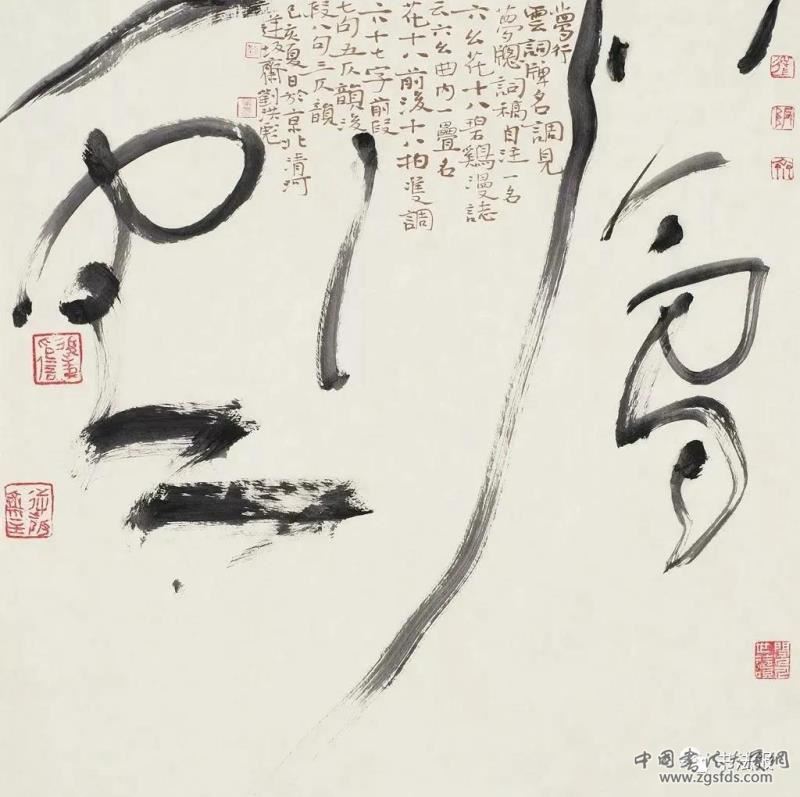 夢行雲
夢行
雲詞牌名調見
夢牕詞稿自注一名
六幺花十八碧鷄漫誌
云六幺曲内一疊名
花十八前後十八拍隻調
六十七字前段
七句五仄韻後
段八句三仄韻
己亥夏日於京北清河
劉洪彪
www.zgsfds.com